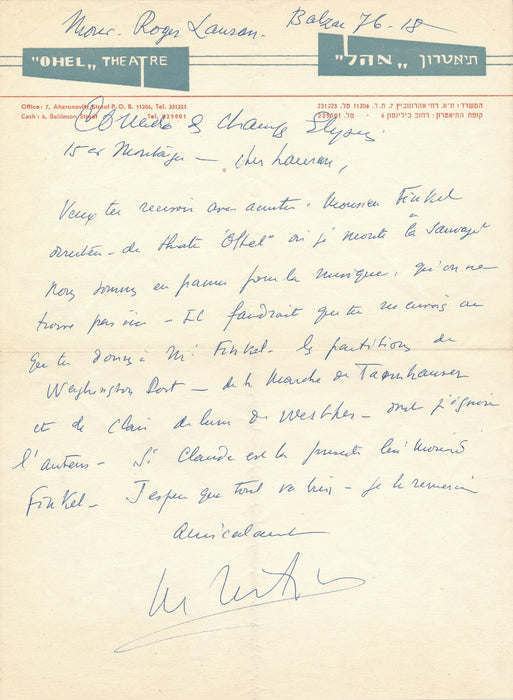 Monr. Roger Lauran. Balzac 76-18
"OHEL„ THEATRE
תיאטרון „אהל"
Office: 7, Aharonovitz Street P. O. B. 11206, Tel. 221223
המשרד: ת״א, רח׳ אהרונוביץ 7, ת.ד. 11206 טל. 221223
Cash: 6, Beilinson Street Tel. 225001
קופת התיאטרון: רחוב בילינסון 6 טל. 225001
Comédie des Champs Elysées
15 av Montaigne — cher Lauran,
Veux tu recevoir avec amitié, Monsieur Finkel
directeur de theatre "Ohel" où je monte la Sauvage
Nous sommes en panne pour la musique, qu'on ne
trouve pas ici — Il faudrait que tu
que tu donnes à Mr Finkel les partitions de
Washington Post — de la Marche de Tannhauser
et de Clair de lune de Werther — dont j'ignore
l'auteur — Si Claude est là présente lui Monsieur
Finkel — J'espère que tout va bien — je te remercie
Amicalement